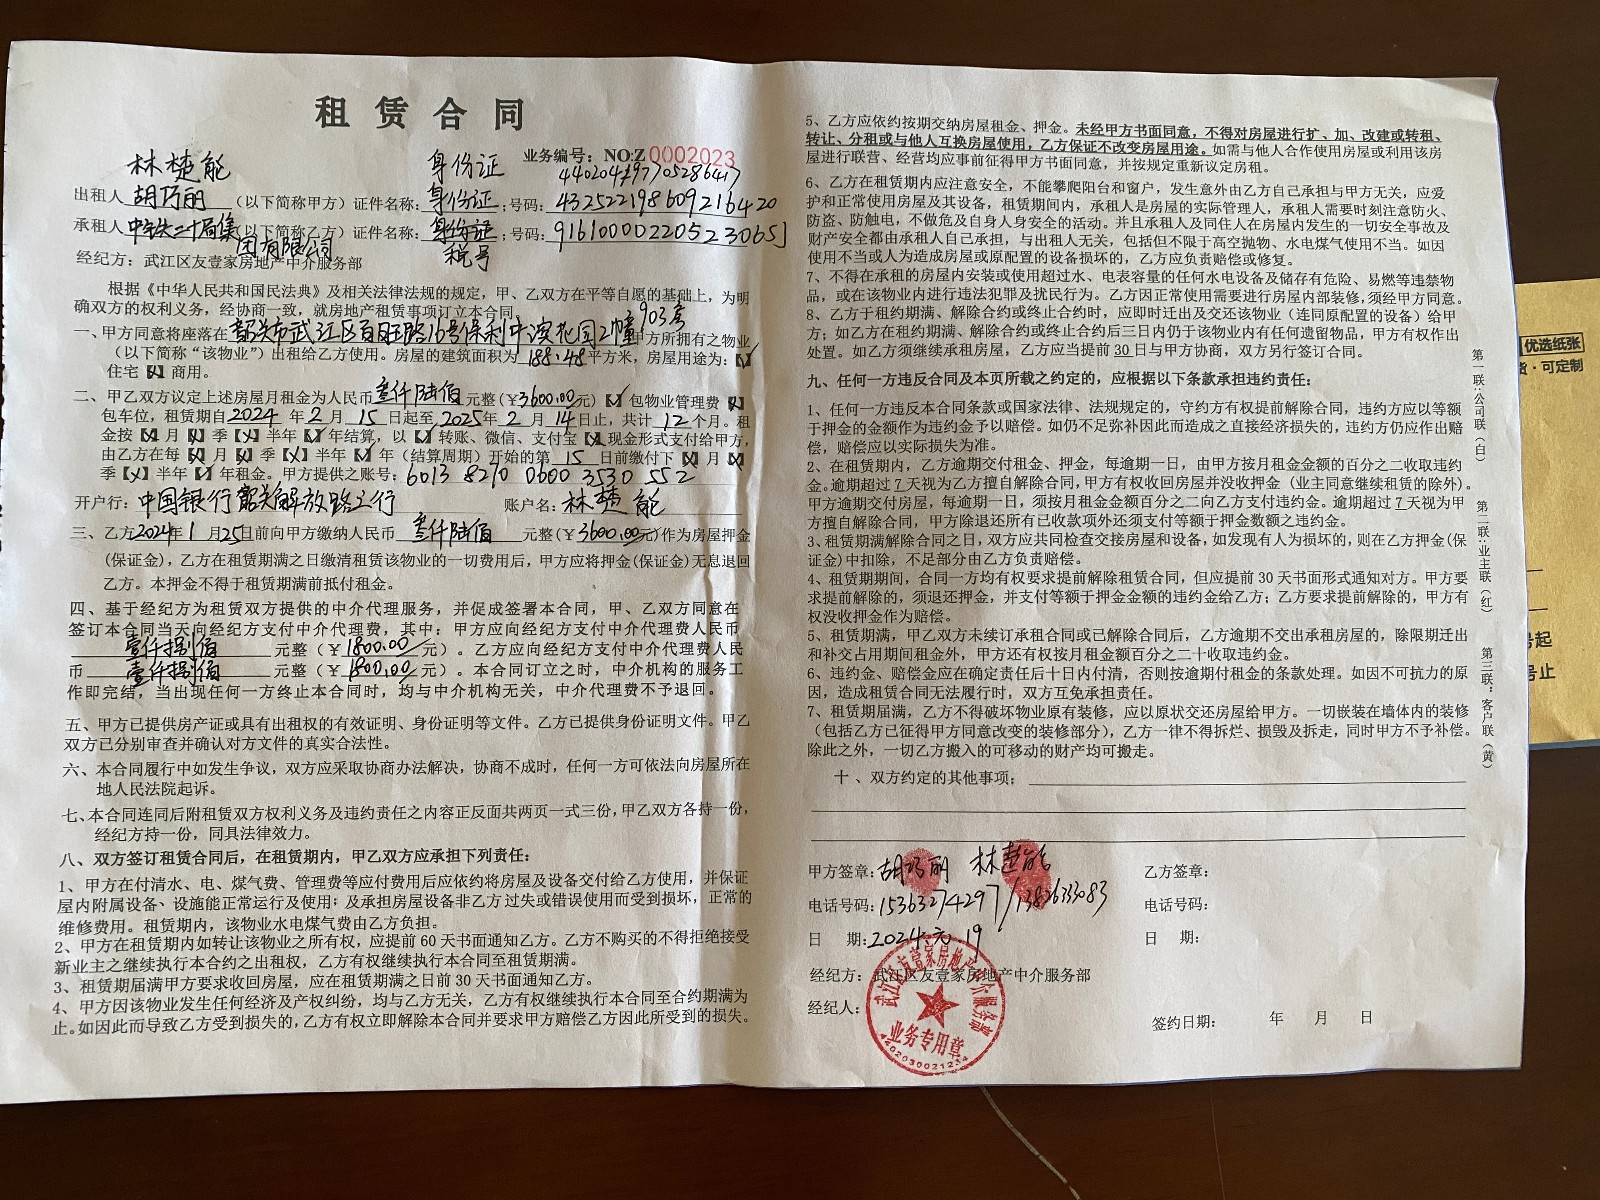 租 赁 合 同
业务编号：NO:Z 0002023
林楚能 身份证 440204197705286417
出租人 胡巧丽 （以下简称甲方）证件名称：身份证；号码：432522198609216420
承租人 中铁二十局集团有限公司 （以下简称乙方）证件名称：身份证 税号；号码：91610000220523065J
经纪方：武江区友壹家房地产中介服务部
根据《中华人民共和国民法典》及相关法律法规的规定，甲、乙双方在平等自愿的基础上，为明
确双方的权利义务，经协商一致，就房地产租赁事项订立本合同。
一、甲方同意将座落在 韶关市武江区百旺路16号保利中 花园2幢903房 甲方所拥有之物业
（以下简称“该物业”）出租给乙方使用。房屋的建筑面积为 188.48 平方米，房屋用途为：【√】
住宅【×】商用。
二、甲乙双方议定上述房屋月租金为人民币 叁仟陆佰 元整(￥3600.00元)【】包物业管理费【】
包车位，租赁期自2024年 2 月 15 日起至2025年 2 月 14日止，共计 12 个月。租
金按【】月【】季【】半年【】年结算，以【】转账、微信、支付宝【】现金形式支付给甲方，
由乙方在每【】月【】季【】半年【】年（结算周期）开始的第 15 日前缴付下【】月【】
季【】半年【】年租金。甲方提供之账号：6013 8270 0600 3530 552
开户行：中国银行韶关解放路支行 账户名：林楚能
三、乙方2024年 1 月25日前向甲方缴纳人民币 叁仟陆佰 元整(￥3600.00元)作为房屋押金
(保证金)，乙方在租赁期满之日缴清租赁该物业的一切费用后，甲方应将押金(保证金)无息退回
乙方。本押金不得于租赁期满前抵付租金。
四、基于经纪方为租赁双方提供的中介代理服务，并促成签署本合同，甲、乙双方同意在
签订本合同当天向经纪方支付中介代理费，其中：甲方应向经纪方支付中介代理费人民币
壹仟捌佰 元整（￥1800.00元）。乙方应向经纪方支付中介代理费人民
币 壹仟捌佰 元整（￥1800.00元）。本合同订立之时，中介机构的服务工
作即完结，当出现任何一方终止本合同时，均与中介机构无关，中介代理费不予退回。
五、甲方已提供房产证或具有出租权的有效证明、身份证明等文件。乙方已提供身份证明文件。甲乙
双方已分别审查并确认对方文件的真实合法性。
六、本合同履行中如发生争议，双方应采取协商办法解决，协商不成时，任何一方可依法向房屋所在
地人民法院起诉。
七、本合同连同后附租赁双方权利义务及违约责任之内容正反面共两页一式三份，甲乙双方各持一份，
经纪方持一份，同具法律效力。
八、双方签订租赁合同后，在租赁期内，甲乙双方应承担下列责任：
1、甲方在付清水、电、煤气费、管理费等应付费用后应依约将房屋及设备交付给乙方使用，并保证
屋内附属设备、设施能正常运行及使用；及承担房屋设备非乙方过失或错误使用而受到损坏，正常的
维修费用。租赁期内，该物业水电煤气费由乙方负担。
2、甲方在租赁期内如转让该物业之所有权，应提前 60 天书面通知乙方。乙方不购买的不得拒绝接受
新业主之继续执行本合约之出租权，乙方有权继续执行本合同至租赁期满。
3、租赁期届满甲方要求收回房屋，应在租赁期满之日前 30 天书面通知乙方。
4、甲方因该物业发生任何经济及产权纠纷，均与乙方无关，乙方有权继续执行本合同至合约期满为
止。如因此而导致乙方受到损失的，乙方有权立即解除本合同并要求甲方赔偿乙方因此所受到的损失。
5、乙方应依约按期交纳房屋租金、押金。未经甲方书面同意，不得对房屋进行扩、加、改建或转租、
转让、分租或与他人互换房屋使用，乙方保证不改变房屋用途。如需与他人合作使用房屋或利用该房
屋进行联营、经营均应事前征得甲方书面同意，并按规定重新议定房租。
6、乙方在租赁期内应注意安全，不能攀爬阳台和窗户，发生意外由乙方自己承担与甲方无关，应爱
护和正常使用房屋及其设备，租赁期间内，承租人是房屋的实际管理人，承租人需要时刻注意防火、
防盗、防触电，不做危及自身人身安全的活动。并且承租人及同住人在房屋内发生的一切安全事故及
财产安全都由承租人自己承担，与出租人无关，包括但不限于高空抛物、水电煤气使用不当。如因
使用不当或人为造成房屋或原配置的设备损坏的，乙方应负责赔偿或修复。
7、不得在承租的房屋内安装或使用超过水、电表容量的任何水电设备及储存有危险、易燃等违禁物
品，或在该物业内进行违法犯罪及扰民行为。乙方因正常使用需要进行房屋内部装修，须经甲方同意。
8、乙方于租约期满、解除合约或终止合约时，应即时迁出及交还该物业（连同原配置的设备）给甲
方；如乙方在租约期满、解除合约或终止合约后三日内仍于该物业内有任何遗留物品，甲方有权作出
处置。如乙方须继续承租房屋，乙方应当提前 30 日与甲方协商，双方另行签订合同。
九、任何一方违反合同及本页所载之约定的，应根据以下条款承担违约责任：
1、任何一方违反本合同条款或国家法律、法规规定的，守约方有权提前解除合同，违约方应以等额
于押金的金额作为违约金予以赔偿。如仍不足弥补因此而造成之直接经济损失的，违约方仍应作出赔
偿，赔偿应以实际损失为准。
2、在租赁期内，乙方逾期交付租金、押金，每逾期一日，由甲方按月租金金额的百分之二收取违约
金。逾期超过 7 天视为乙方擅自解除合同，甲方有权收回房屋并没收押金（业主同意继续租赁的除外）。
甲方逾期交付房屋，每逾期一日，须按月租金金额百分之二向乙方支付违约金。逾期超过 7 天视为甲
方擅自解除合同，甲方除退还所有已收款项外还须支付等额于押金数额之违约金。
3、租赁期满解除合同之日，双方应共同检查交接房屋和设备，如发现有人为损坏的，则在乙方押金(保
证金)中扣除，不足部分由乙方负责赔偿。
4、租赁期期间，合同一方均有权要求提前解除租赁合同，但应提前 30 天书面形式通知对方。甲方要
求提前解除的，须退还押金，并支付等额于押金金额的违约金给乙方；乙方要求提前解除的，甲方有
权没收押金作为赔偿。
5、租赁期满，甲乙双方未续订承租合同或已解除合同后，乙方逾期不交出承租房屋的，除限期迁出
和补交占用期间租金外，甲方还有权按月租金额百分之二十收取违约金。
6、违约金、赔偿金应在确定责任后十日内付清，否则按逾期付租金的条款处理。如因不可抗力的原
因，造成租赁合同无法履行时，双方互免承担责任。
7、租赁期届满，乙方不得破坏物业原有装修，应以原状交还房屋给甲方。一切嵌装在墙体内的装修
（包括乙方已征得甲方同意改变的装修部分），乙方一律不得拆烂、损毁及拆走，同时甲方不予补偿。
除此之外，一切乙方搬入的可移动的财产均可搬走。
十 、双方约定的其他事项；
甲方签章：胡巧丽 林楚能 乙方签章：
电话号码：15363274297/13826333083 电话号码：
日 期：2024.元 19 日 期：
经纪方：武江区友壹家房地产中介服务部
经纪人：
签约日期： 年 月 日
武江区友壹家房地产中介服务部
业务专用章
4402030021234
第一联：公司联（白）
第二联：业主联（红）
第三联：客户联（黄）
优选纸张
货·可定制
号起
号止